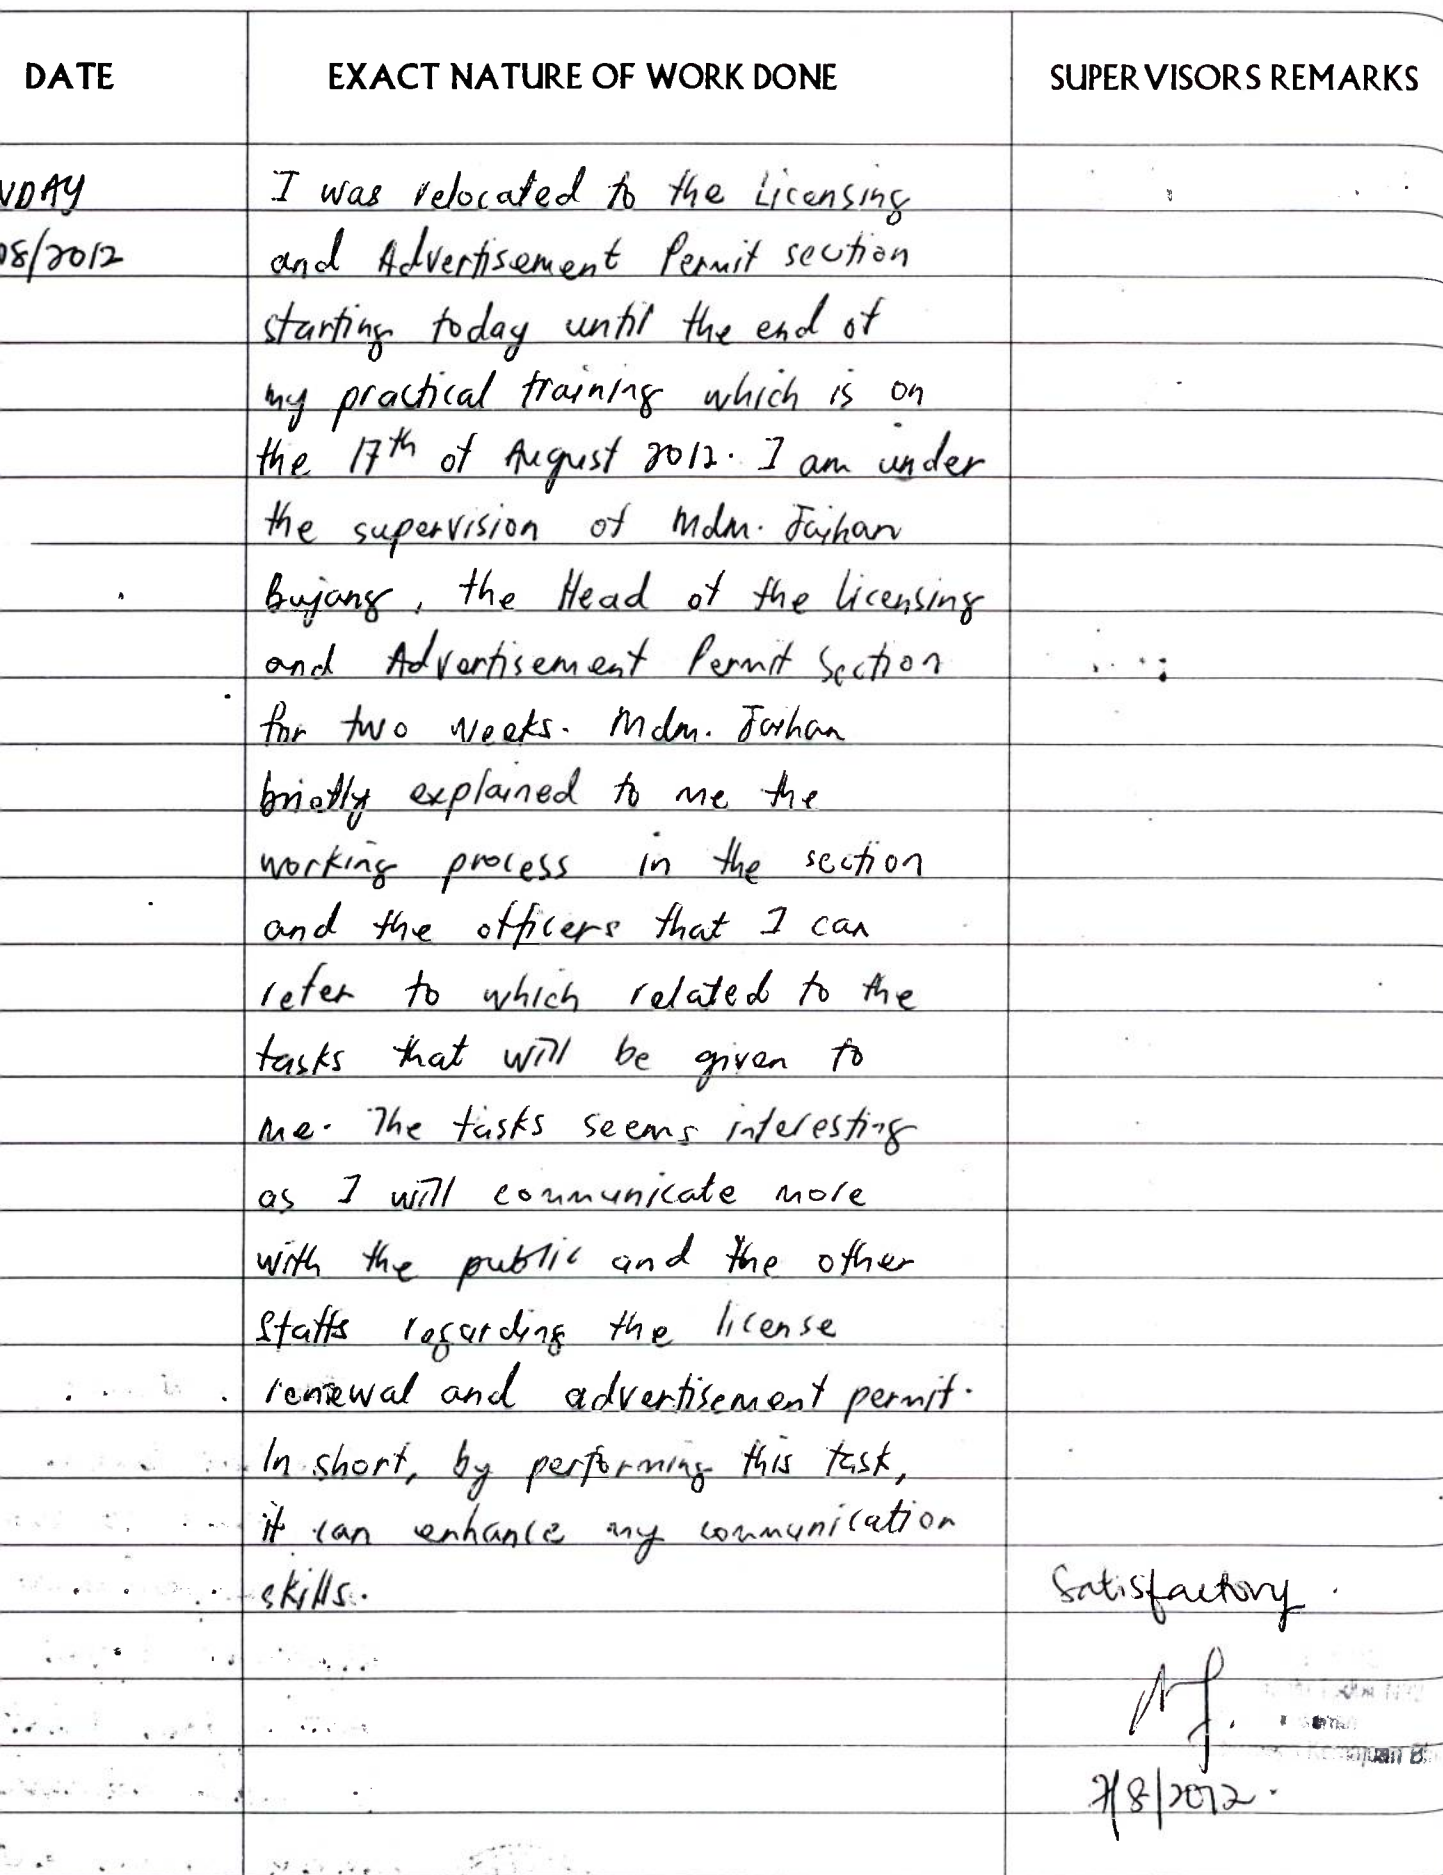 DATE EXACT NATURE OF WORK DONE SUPERVISORS REMARKS
NDAY I was relocated to the Licensing
08/2012 and Advertisement Permit section
starting today until the end of
my practical training which is on
the 17th of August 2012. I am under
the supervision of Mdm. Jaihan
Bujang, the Head of the licensing
and Advertisement Permit Section
for two weeks. Mdm. Jaihan
briefly explained to me the
working process in the section
and the officers that I can
refer to which related to the
tasks that will be given to
me. The tasks seems interesting
as I will communicate more
with the public and the other
staffs regarding the license
renewal and advertisement permit.
In short, by performing this task,
it can enhance my communication
skills. Satisfactory.
7/8/2012.